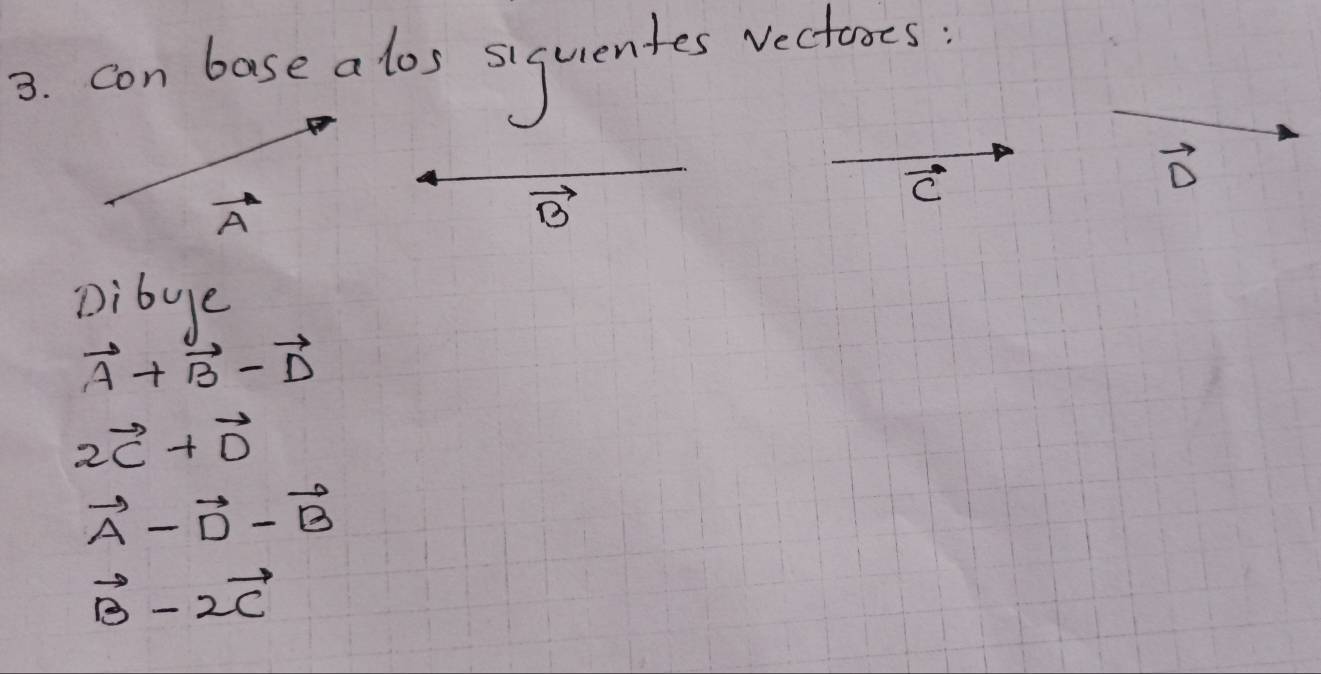 3. con base a los siguientes vectores:
A⃗ B⃗ C⃗ D⃗
Dibuje
A⃗ + B⃗ - D⃗
2C⃗ + D⃗
A⃗ - D⃗ - B⃗
B⃗ - 2C⃗